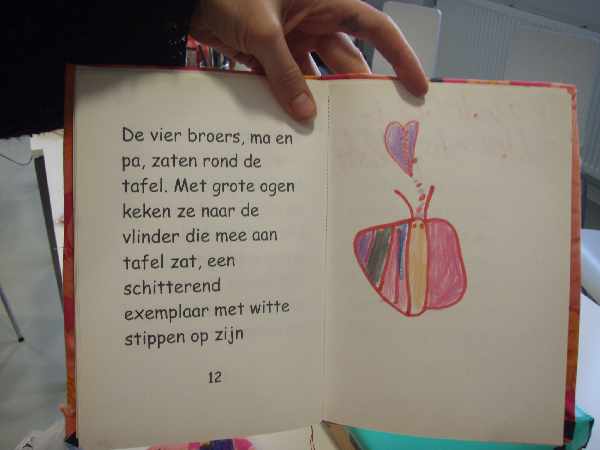 De vier broers, ma en
pa, zaten rond de
tafel. Met grote ogen
keken ze naar de
vlinder die mee aan
tafel zat, een
schitterend
exemplaar met witte
stippen op zijn
12